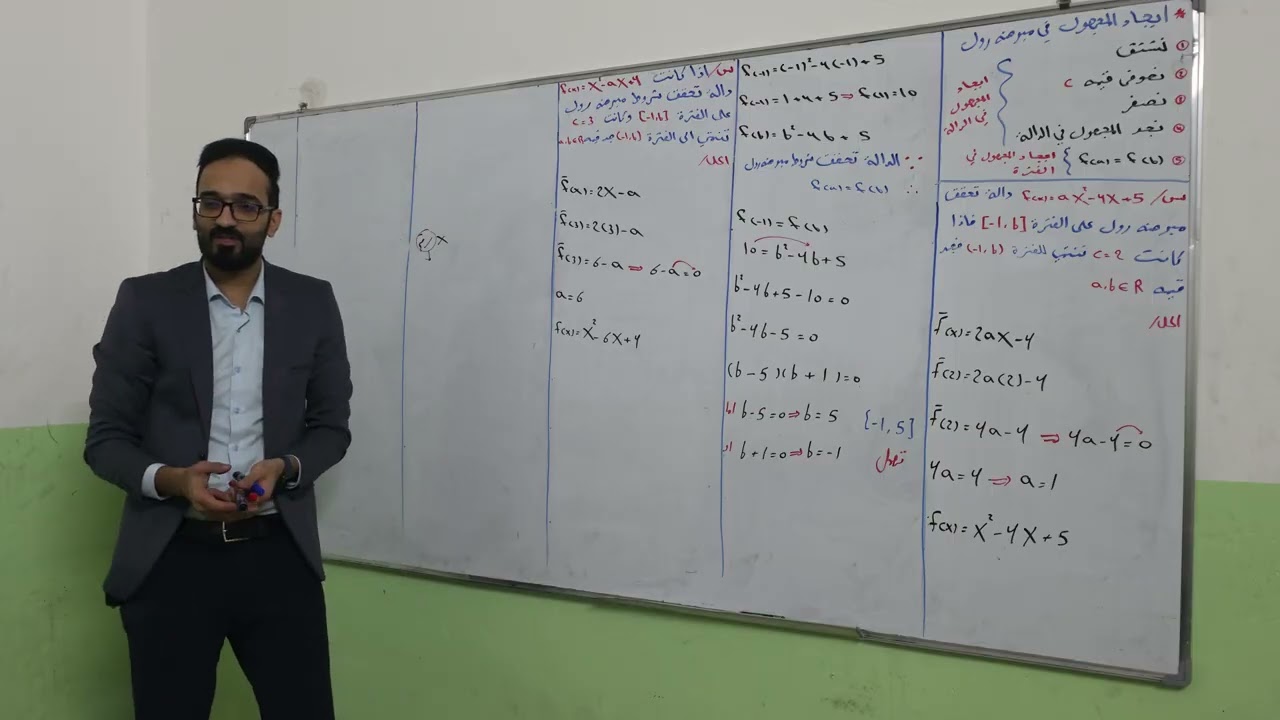 * ايجاد المجهول في مبرهنة رول
① نشتق
② نعوض قيمة c
③ نصفر
④ نجد المجهول في الدالة
ايجاد المجهول في الدالة
⑤ f(a) = f(b) } ايجاد المجهول في الفترة
س/ f(x) = ax² - 4x + 5 دالة تحقق
مبرهنة رول على الفترة [-1, b] فاذا
كانت c = 2 تنتمي للفترة (-1, b) فجد
قيمة a, b ∈ R
الحل/
f̄(x) = 2ax - 4
f̄(2) = 2a(2) - 4
f̄(2) = 4a - 4 ⇒ 4a - 4 = 0
4a = 4 ⇒ a = 1
f(x) = x² - 4x + 5
f(-1) = (-1)² - 4(-1) + 5
f(-1) = 1 + 4 + 5 ⇒ f(-1) = 10
f(b) = b² - 4b + 5
∵ الدالة تحقق شروط مبرهنة رول
∴ f(a) = f(b)
f(-1) = f(b)
10 = b² - 4b + 5
b² - 4b + 5 - 10 = 0
b² - 4b - 5 = 0
(b - 5)(b + 1) = 0
اما b - 5 = 0 ⇒ b = 5 [-1, 5]
او b + 1 = 0 ⇒ b = -1
س/ اذا كانت f(x) = x² - ax + 4
دالة تحقق شروط مبرهنة رول
على الفترة [-1, b] وكانت c = 3
تنتمي الى الفترة (-1, b) جد قيمة a, b ∈ R
الحل/
f̄(x) = 2x - a
f̄(3) = 2(3) - a
f̄(3) = 6 - a ⇒ 6 - a = 0
a = 6
f(x) = x² - 6x + 4